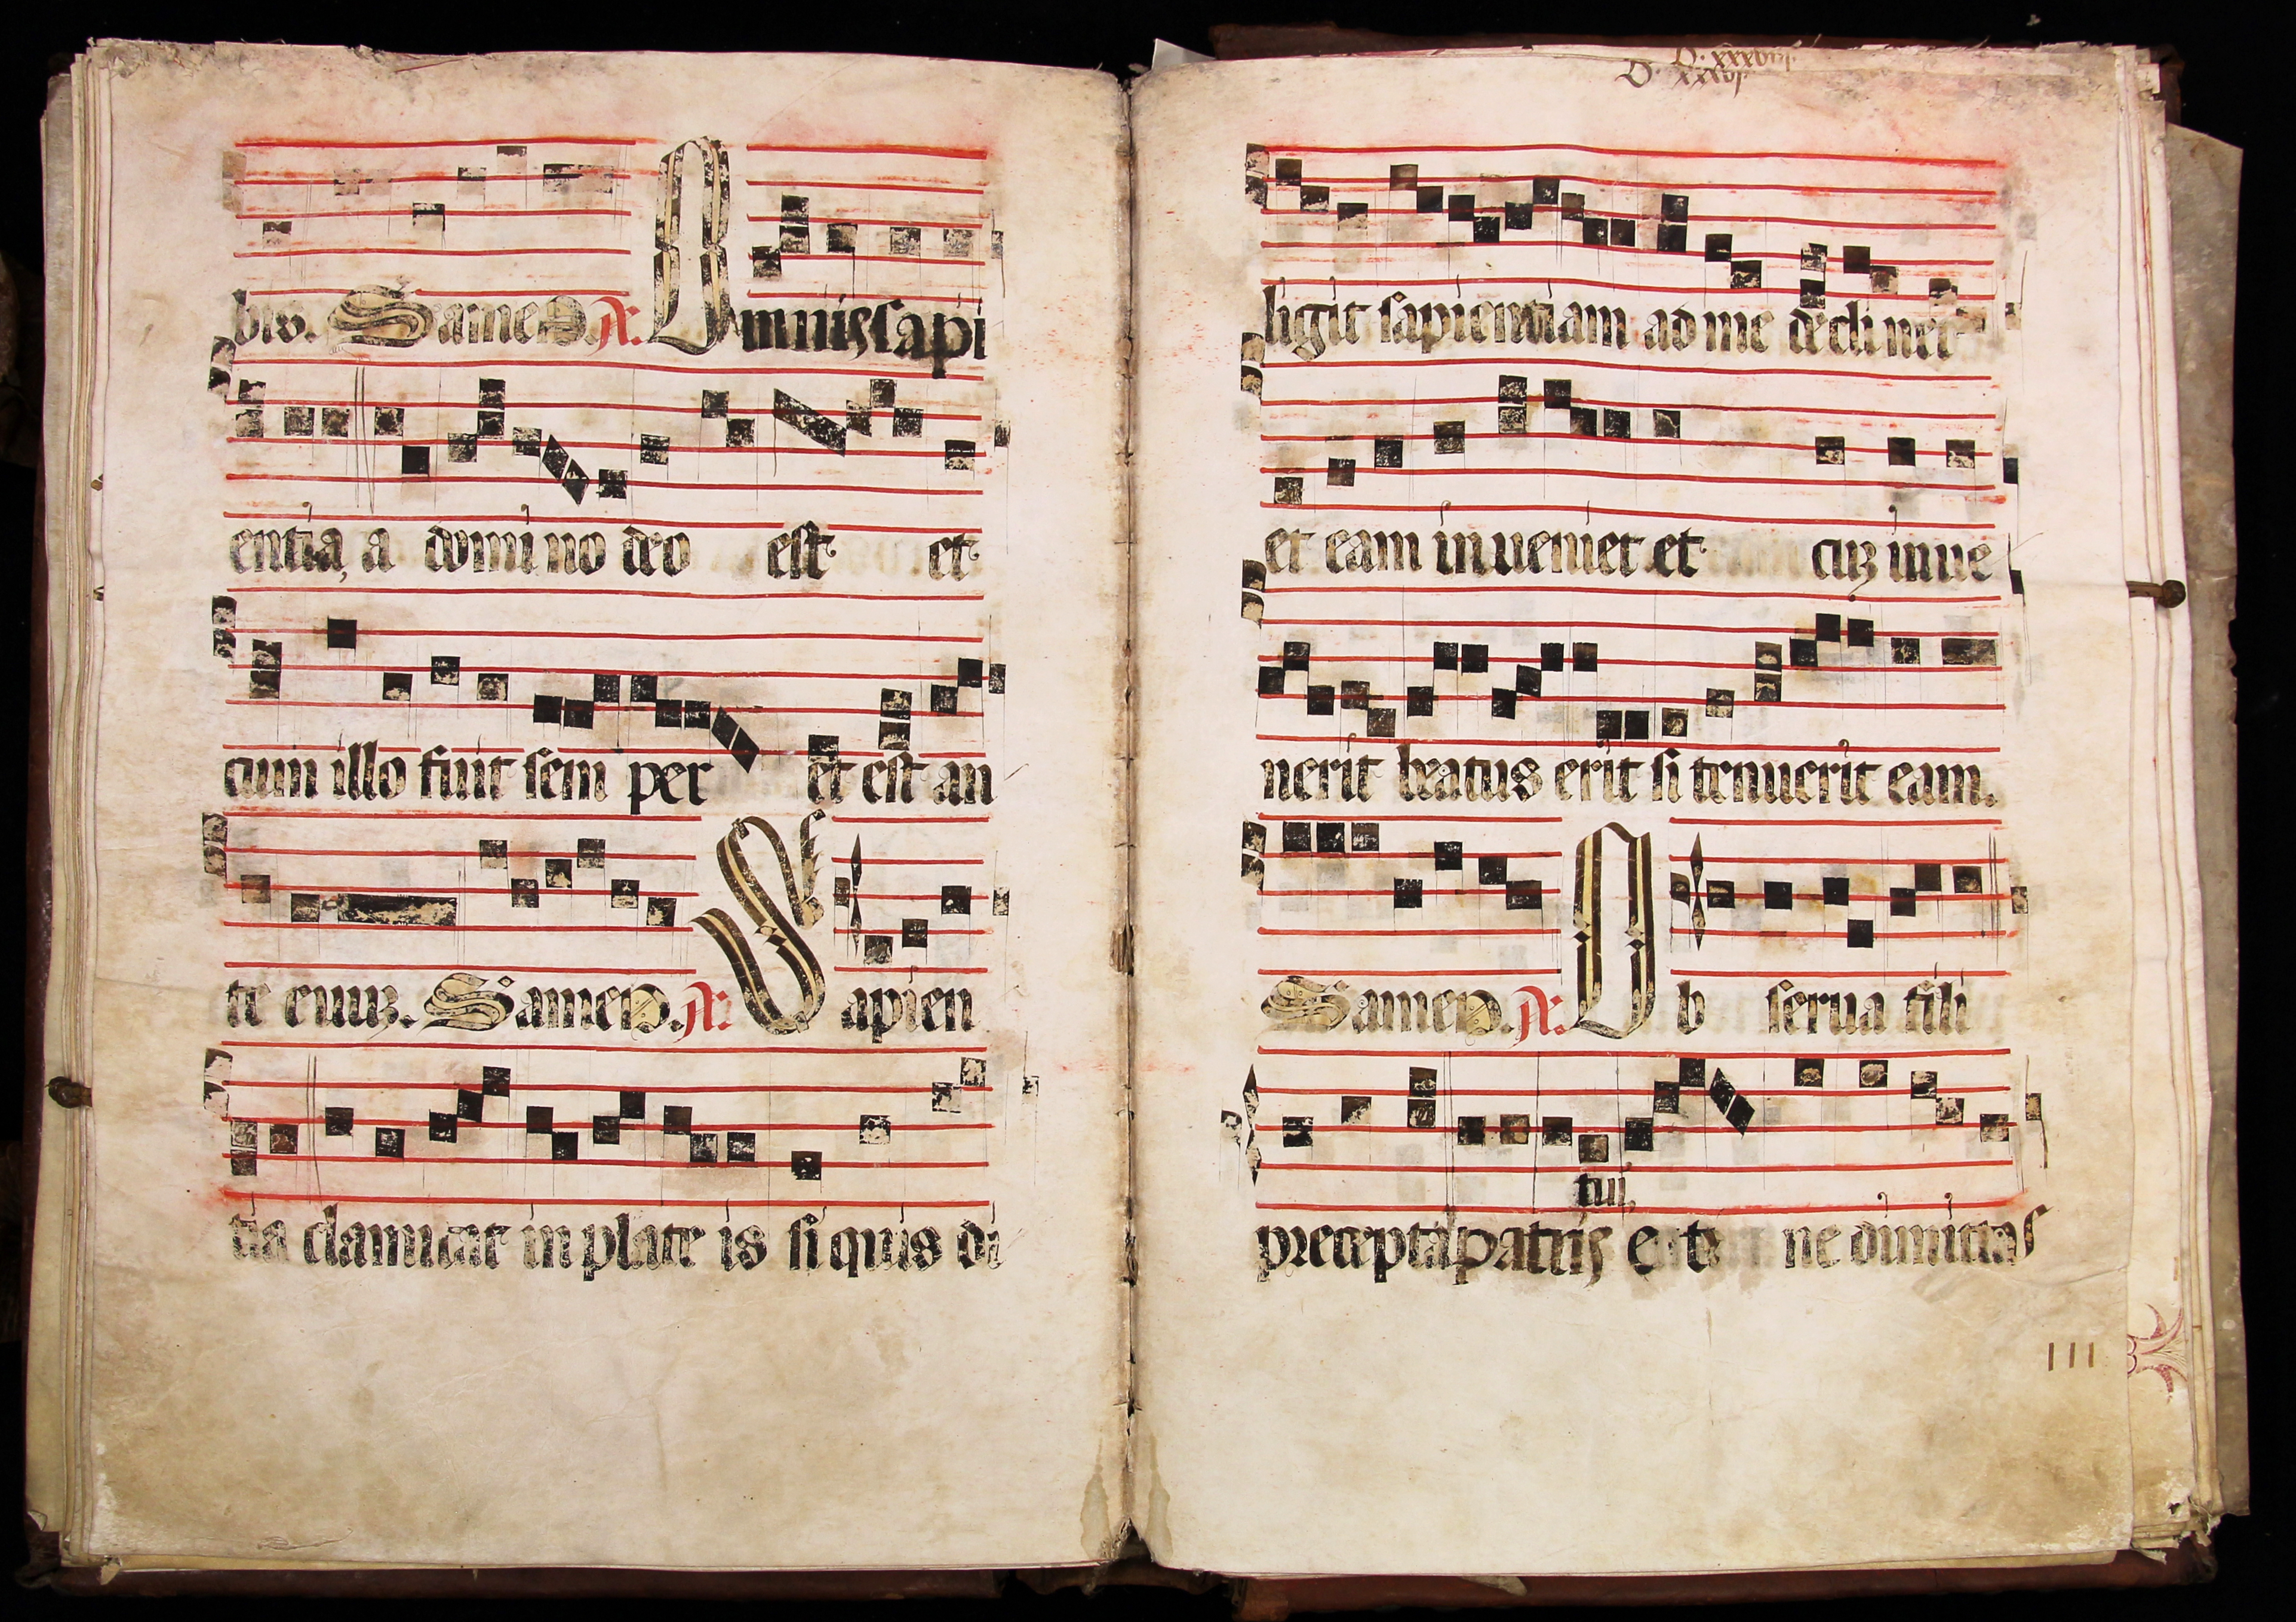 bis. Sameno. A. Omnis sapi
entia, a domino deo est et
cum illo fuit sem per et est an
te euuz. Sameno. A. Sapien
tia clamitat in plate is si quis di
O. xxxviij.
O. xxxvj.
ligit sapientiam ad me declinet
et eam inueniet et cuz inue
nerit beatus erit si tenuerit eam.
Sameno. A. Ob serua fili
tui,
precepta patris et ne dimittas
111